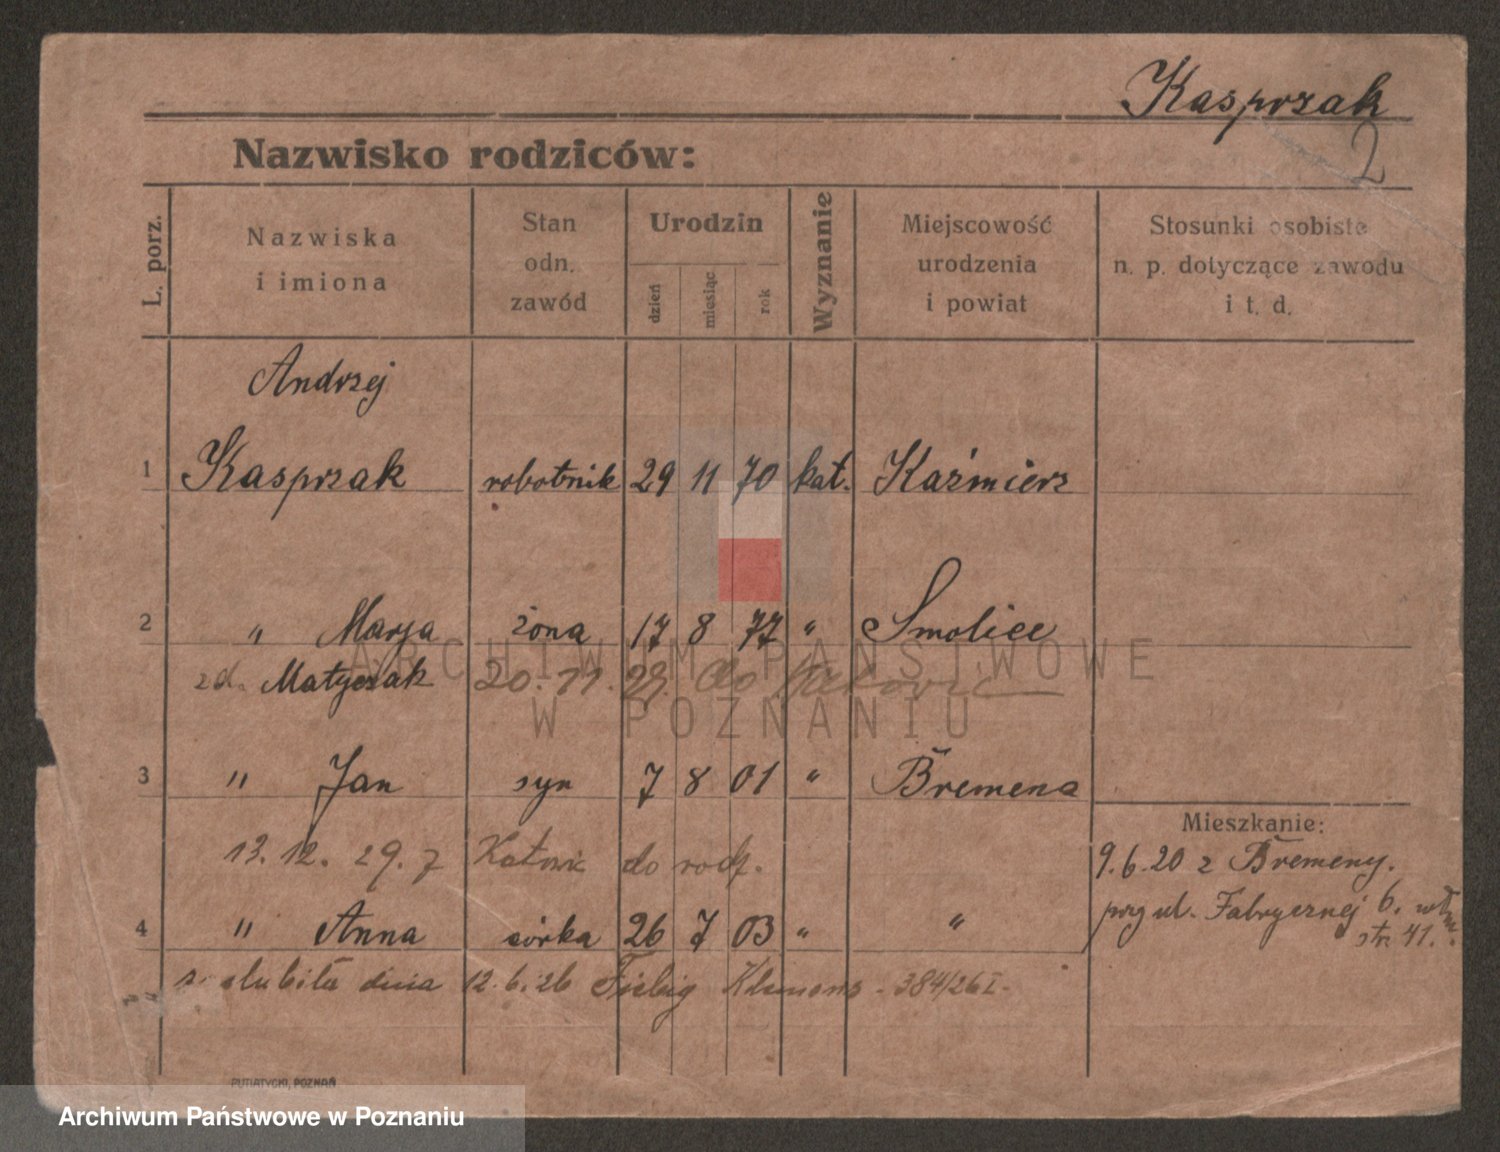 Kasprzak
2
Nazwisko rodziców:
L. porz.
Nazwiska
i imiona
Stan
odn.
zawód
Urodzin
dzień
miesiąc
rok
Wyznanie
Miejscowość
urodzenia
i powiat
Stosunki osobiste
n. p. dotyczące zawodu
i t. d.
Andrzej
1 Kasprzak robotnik 29 11 70 kat. Kaźmierz
2 " Marja żona 17 8 77 " Smolice
zd. Matyczak 20.11.29. do
ARCHIWUM PAŃSTWOWE
W POZNANIU
3 " Jan syn 7 8 01 " Bremena
Mieszkanie:
13.12.29. z Katowic do rodz.
9.6.20 z Bremeny.
przy ul. Fabrycznej 6.
str 41.
4 " Anna córka 26 7 03 " "
ślubiła dnia 12.6.26 Fiebig Klemens - 384/26 I-
PUTIATYCKI, POZNAŃ
Archiwum Państwowe w Poznaniu